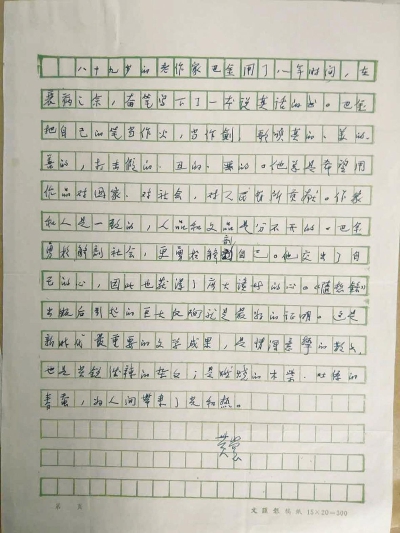 八十九岁的老作家巴金用了八年时间，在
衰弱之余，奋笔写下了一本说真话的书。巴金
把自己的笔当作火，当作剑，歌颂真的、美的、
善的，打击假的、丑的、恶的。他总是希望用
作品对国家、对社会，对人民有所贡献。作家
和人是一致的，人品和文品是分不开的。巴金
勇于解剖社会，更勇于解剖自己。他交出了自
己的心，因此也获得了广大读者的心。《随想录》
出版后引起的巨大反响就是最好的证明。这是
新时期最重要的文学成果，
也是
的
春蚕，为人间带来了光和热。
黄裳
第 页
文汇报稿纸 15×20=300